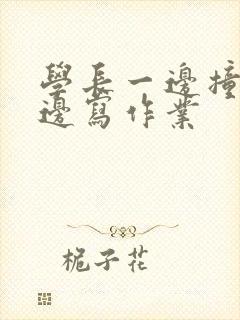 學長一邊撞
邊寫作業
栀子花